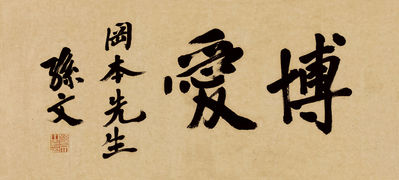 博愛
岡本先生
孫文